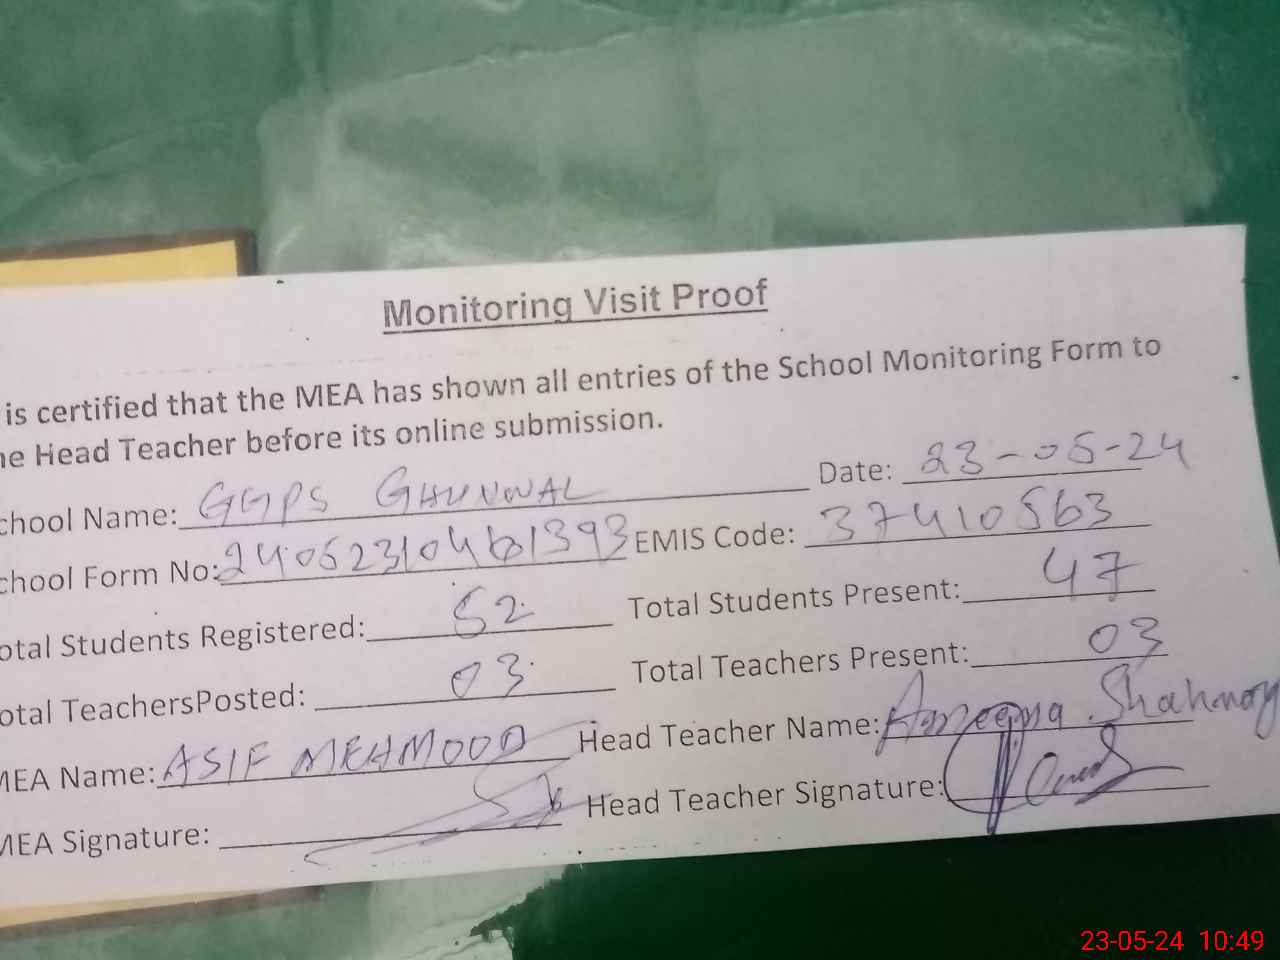 Monitoring Visit Proof
is certified that the MEA has shown all entries of the School Monitoring Form to
he Head Teacher before its online submission.
chool Name: GGPS GHUNWAL Date: 23-05-24
chool Form No: EMIS Code: 37410563
otal Students Registered: 52 Total Students Present: 47
otal TeachersPosted: 03 Total Teachers Present: 03
MEA Name: ASIF MEHMOOD Head Teacher Name:
MEA Signature: Head Teacher Signature:
23-05-24 10:49